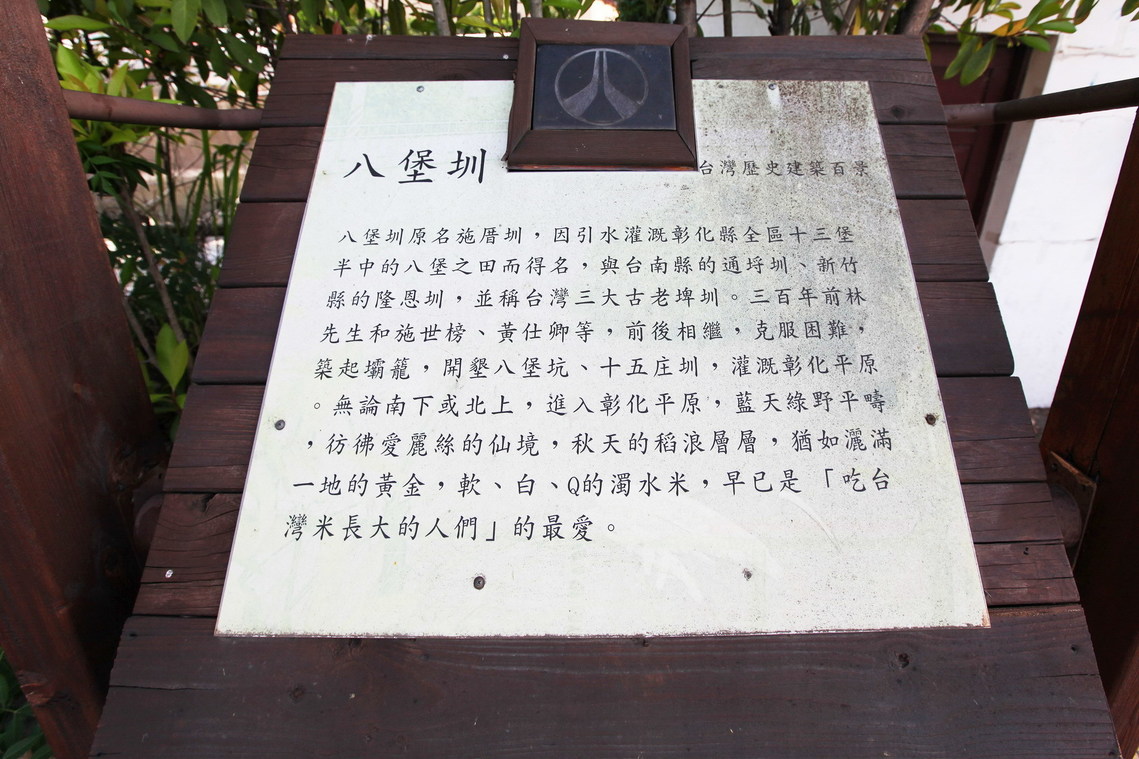 八堡圳
台灣歷史建築百景
八堡圳原名施厝圳，因引水灌溉彰化縣全區十三堡
半中的八堡之田而得名，與台南縣的通埒圳、新竹
縣的隆恩圳，並稱台灣三大古老埤圳。三百年前林
先生和施世榜、黃仕卿等，前後相繼，克服困難，
築起壩籠，開墾八堡坑、十五庄圳，灌溉彰化平原
。無論南下或北上，進入彰化平原，藍天綠野平疇
，彷彿愛麗絲的仙境，秋天的稻浪層層，猶如灑滿
一地的黃金，軟、白、Q的濁水米，早已是「吃台
灣米長大的人們」的最愛。